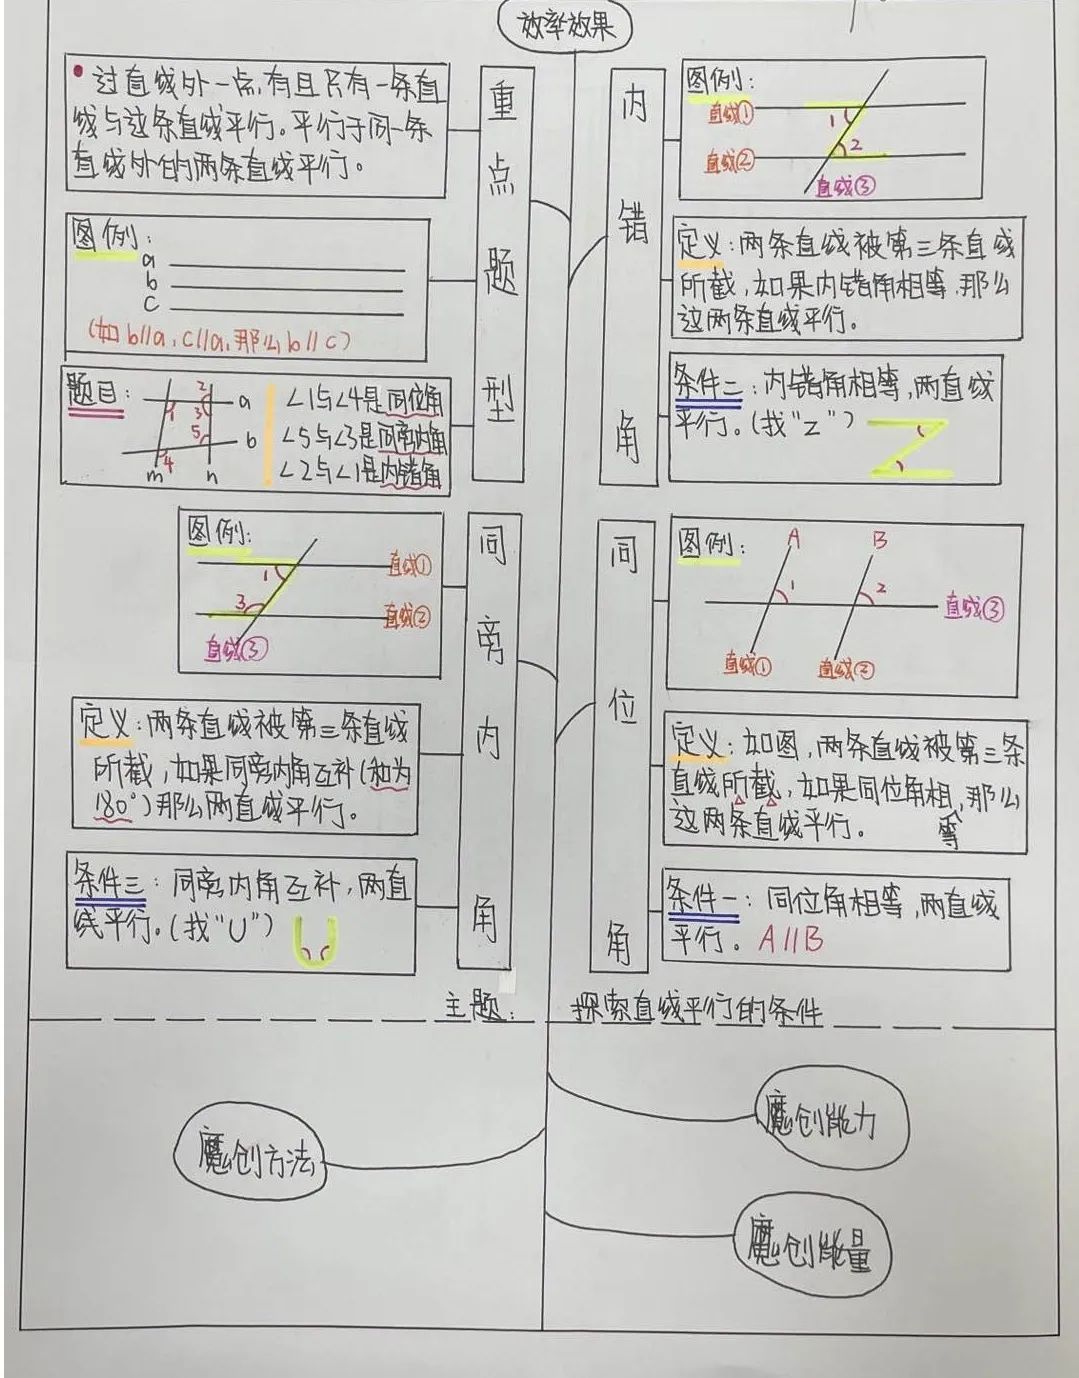 效率效果
• 过直线外一点,有且只有一条直
线与这条直线平行。平行于同一条
直线外的两条直线平行。
图例:
a
b
c
(如b//a,c//a,那么b//c)
题目:
2
1
3
a
5
b
4
m
n
∠1与∠4是同位角
∠5与∠3是同旁内角
∠2与∠1是内错角
重点题型
内错角
图例:
直线①
1
直线②
2
直线③
定义:两条直线被第三条直线
所截,如果内错角相等,那么
这两条直线平行。
条件二:内错角相等,两直线
平行。(找“Z”)
同旁内角
图例:
直线①
1
3
直线②
直线③
定义:两条直线被第三条直线
所截,如果同旁内角互补(和为
180°)那么两直线平行。
条件三:同旁内角互补,两直
线平行。(找“U”)
同位角
图例:
A
B
1
2
直线③
直线①
直线②
定义:如图,两条直线被第三条
直线所截,如果同位角相等,那么
这两条直线平行。
条件一:同位角相等,两直线
平行。A//B
主题:探索直线平行的条件
魔创方法
魔创能力
魔创能量